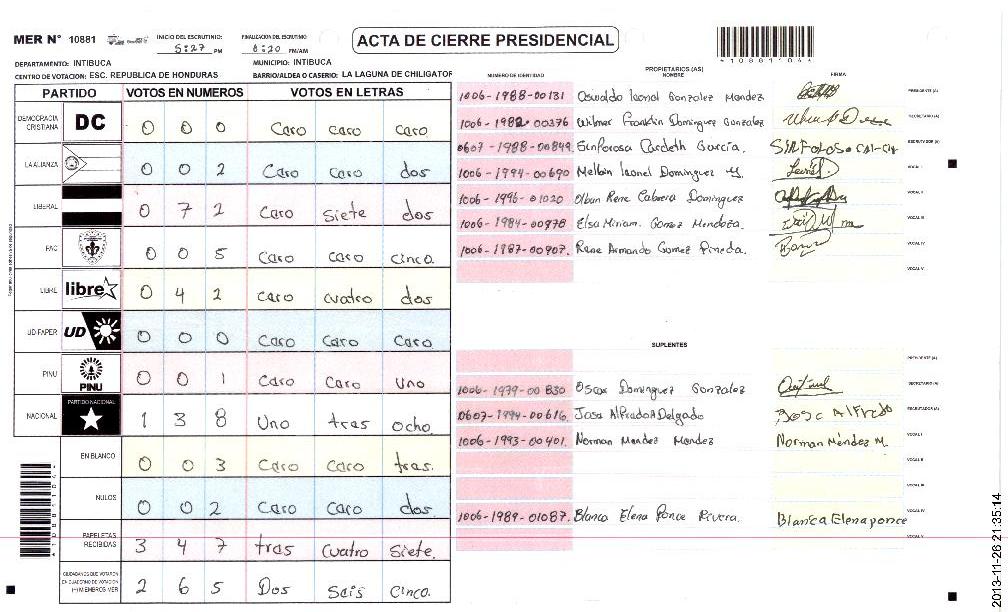 MER N° 10881
INICIO DEL ESCRUTINIO:
5:27 PM
FINALIZACION DEL ESCRUTINIO:
8:20 PM/AM
ACTA DE CIERRE PRESIDENCIAL
DEPARTAMENTO: INTIBUCA
MUNICIPIO: INTIBUCA
CENTRO DE VOTACION: ESC. REPUBLICA DE HONDURAS
BARRIO/ALDEA O CASERIO: LA LAGUNA DE CHILIGATOR
PARTIDO VOTOS EN NUMEROS VOTOS EN LETRAS
DEMOCRACIA CRISTIANA DC 0 0 0 Caro caro Caro
LA ALIANZA 0 0 2 Caro Caro dos
LIBERAL 0 7 2 Caro Siete dos
PAC 0 0 5 Caro caro Cinco.
LIBRE libre 0 4 2 caro cuatro dos
UD-FAPER UD 0 0 0 Caro Caro Caro
PINU PINU 0 0 1 Caro Caro Uno
NACIONAL PARTIDO NACIONAL 1 3 8 Uno tras ocho.
EN BLANCO 0 0 3 Caro caro tras.
NULOS 0 0 2 Caro Caro dos.
PAPELETAS RECIBIDAS 3 4 7 tras Cuatro Siete.
CIUDADANOS QUE VOTARON EN CUADERNO DE VOTACION (+) MIEMBROS MER 2 6 5 Dos Sais Cinco.
1 0 8 8 1 1 0 4
NUMERO DE IDENTIDAD
PROPIETARIOS (AS)
NOMBRE
FIRMA
1006-1988-00131 Oswaldo Leonel Gonzalez Mendez PRESIDENTE (A)
1006-1982-00376 Wilmer Franklin Dominguez Gonzalez SECRETARIO (A)
0607-1988-00849. Sinforosa Cardeth Garcia. ESCRUTADOR (A)
1006-1994-00690 Melbin Leonel Dominguez M. Leonel D. VOCAL I
1006-1996-01020 Olban Rene Cabrera Dominguez VOCAL II
1006-1984-00978 Elsa Miriam. Gomez Mendoza. VOCAL III
1006-1987-00907. Rene Armando Gomez Pineda. VOCAL IV
VOCAL V
SUPLENTES
PRESIDENTE (A)
1006-1979-00830 Oscar Dominguez Gonzalez SECRETARIO (A)
0607-1994-00616. Jose Alfredo Delgado Jose Alfredo ESCRUTADOR (A)
1006-1993-00401. Norman Mendez Mendez Norman Méndez M. VOCAL I
VOCAL II
VOCAL III
1006-1989-01087. Blanca Elena Ponce Rivera. Blanca Elena ponce VOCAL IV
VOCAL V
2013-11-26 21:35:14